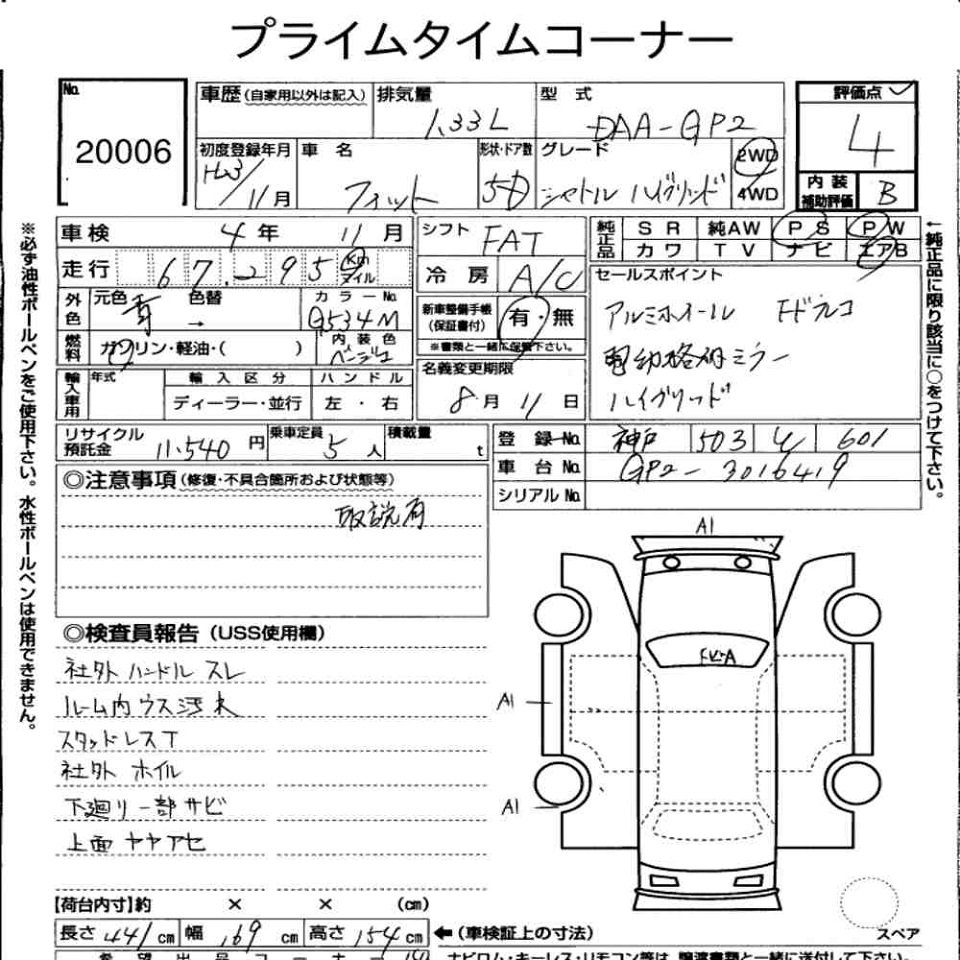 プライムタイムコーナー
No. 20006
車歴(自家用以外は記入) 排気量 1.33L 型式 DAA-GP2
評価点 4
初度登録年月 H23/11月 車名 フィット 形状・ドア数 5D グレード シャトル ハイブリッド 2WD 4WD
内装補助評価 B
車検 4年 11月 シフト FAT 純正品 SR 純AW PS PW
カワ TV ナビ エアB
走行 67,295 Km マイル 冷房 A/C セールスポイント
外色 元色 青 色替 → カラーNo. B534M 新車整備手帳(保証書付) 有・無 アルミホイール
※書類と一緒に保管下さい。
燃料 ガソリン・軽油・( ) 内装色 ベージュ 電動格納ミラー
名義変更期限 8月 11日 ハイブリッド
輸入車用 年式 輸入区分 ハンドル
ディーラー・並行 左・右
リサイクル預託金 11,540円 乗車定員 5人 積載量 t 登録No. 神戸 503 601
車台No. GP2-3016419
シリアルNo.
◎注意事項(修復・不具合箇所および状態等)
取説有
※必ず油性ボールペンをご使用下さい。水性ボールペンは使用できません。
←純正品に限り該当に○をつけて下さい。
◎検査員報告(USS使用欄)
社外ハンドル スレ
ルーム内 ウス汚れ
スタッドレスT
社外 ホイル
下廻り一部サビ
上面 ヤヤアセ
A1
A1
A1
スペア
【荷台内寸】約 × × (cm)
長さ 441cm 幅 169cm 高さ 154cm ←(車検証上の寸法)
希望出品コーナー
ナビロム・キーレス・リモコン等は、譲渡書類と一緒に送付して下さい。